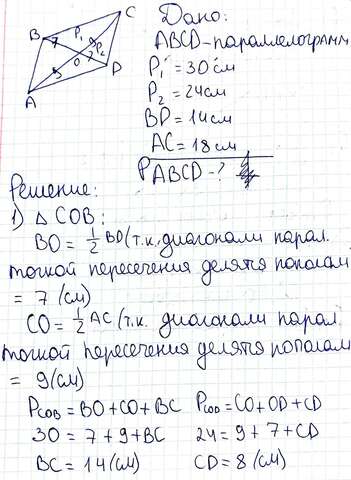 C
B
7
P₁
9
P₂
O
7
D
A
Дано:
ABCD-параллелограмм
P₁ = 30 см
P₂ = 24 см
BD = 14 см
AC = 18 см
P ABCD - ?
Решение:
1) △ COB:
BO = 1/2 BD (т.к. диагонали парал.
точкой пересечения делятся пополам
= 7 (см)
CO = 1/2 AC (т.к. диагонали парал.
точкой пересечения делятся пополам
= 9 (см)
P COB = BO + CO + BC P COD = CO + OD + CD
30 = 7 + 9 + BC 24 = 9 + 7 + CD
BC = 14 (см) CD = 8 (см)